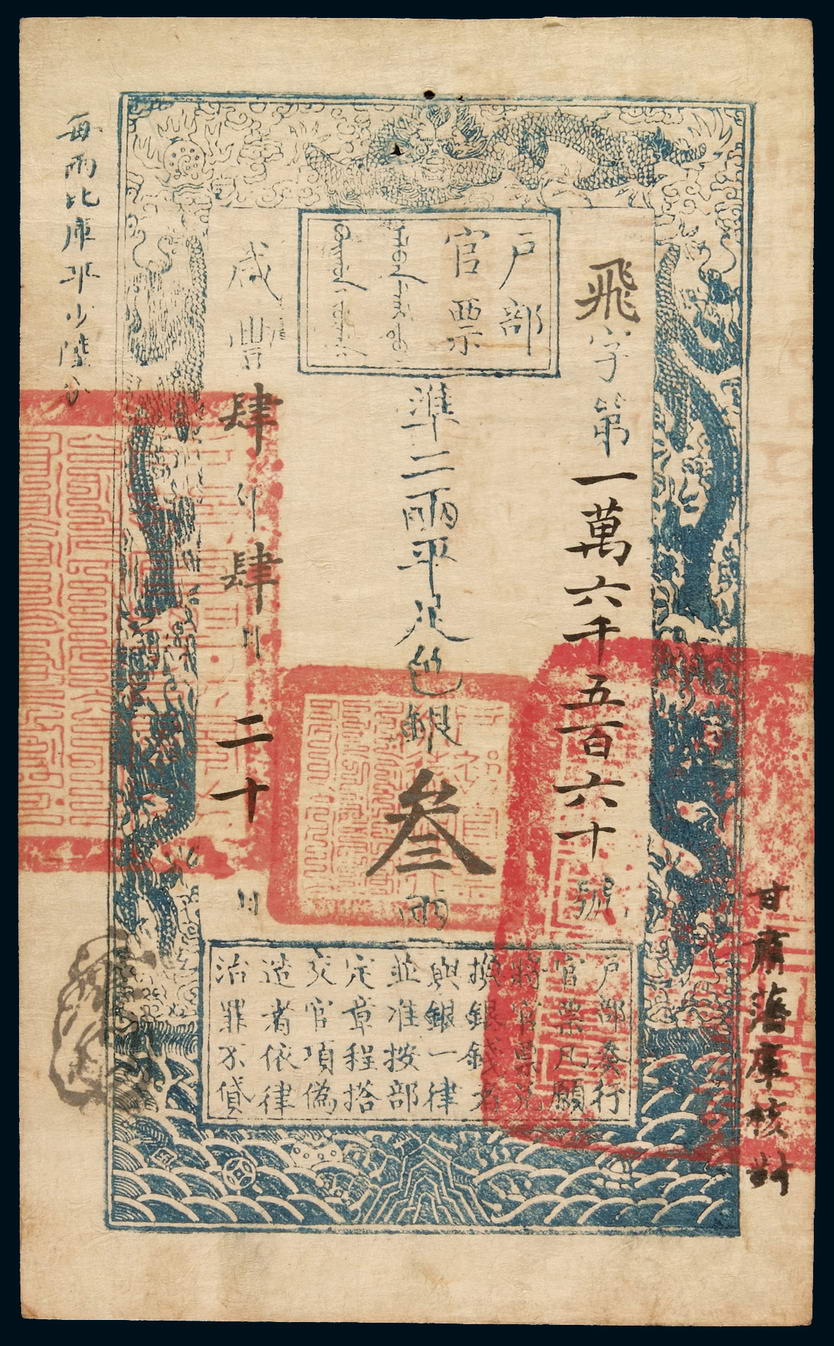 户部
官票
飛字第一萬六千五百六十號
準二兩平足色銀叁兩
咸豐肆年肆月二十日
户部奏行
官票凡願
將官票兌
換銀錢者
與銀一律
並准按部
定章程搭
交官項偽
造者依律
治罪不貸
甘肅藩庫核對
每兩比庫平少陸分